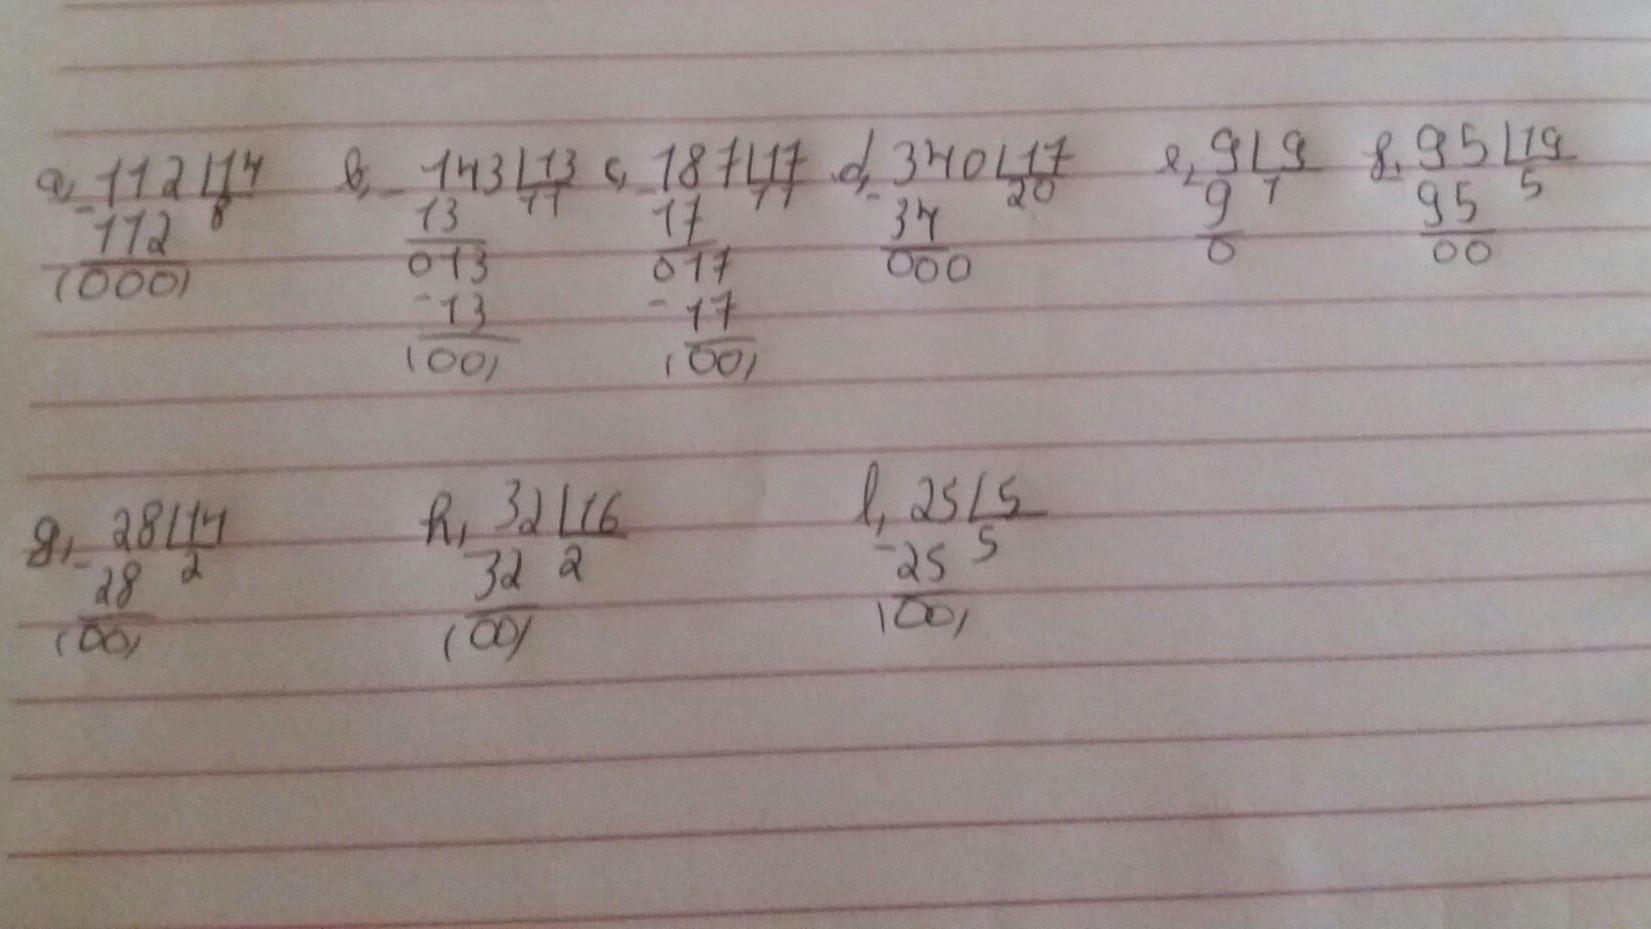 a, 112 14 b, 143 13 c, 187 17 d, 340 17 e, 9 9 f, 95 19
-112 8 - 13 11 - 17 11 - 34 20 - 9 1 - 95 5
(000) 013 017 000 0 00
-13 -17
(00) (00)
g, 28 14 h, 32 16 l, 25 5
- 28 2 - 32 2 -25 5
(00) (00) (00)